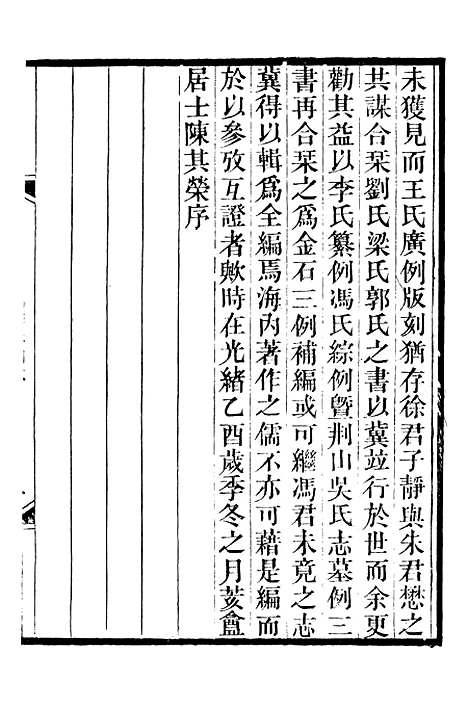 未獲見而王氏廣例版刻猶存徐君子靜與朱君懋之
共謀合栞劉氏梁氏郭氏之書以冀竝行於世而余更
勸其益以李氏纂例馮氏綜例曁荆山吳氏志墓例三
書再合栞之爲金石三例補編或可繼馮君未竟之志
冀得以輯爲全編焉海內著作之儒不亦可藉是編而
於以參攷互證者歟時在光緒乙酉歲季冬之月茭盦
居士陳其榮序